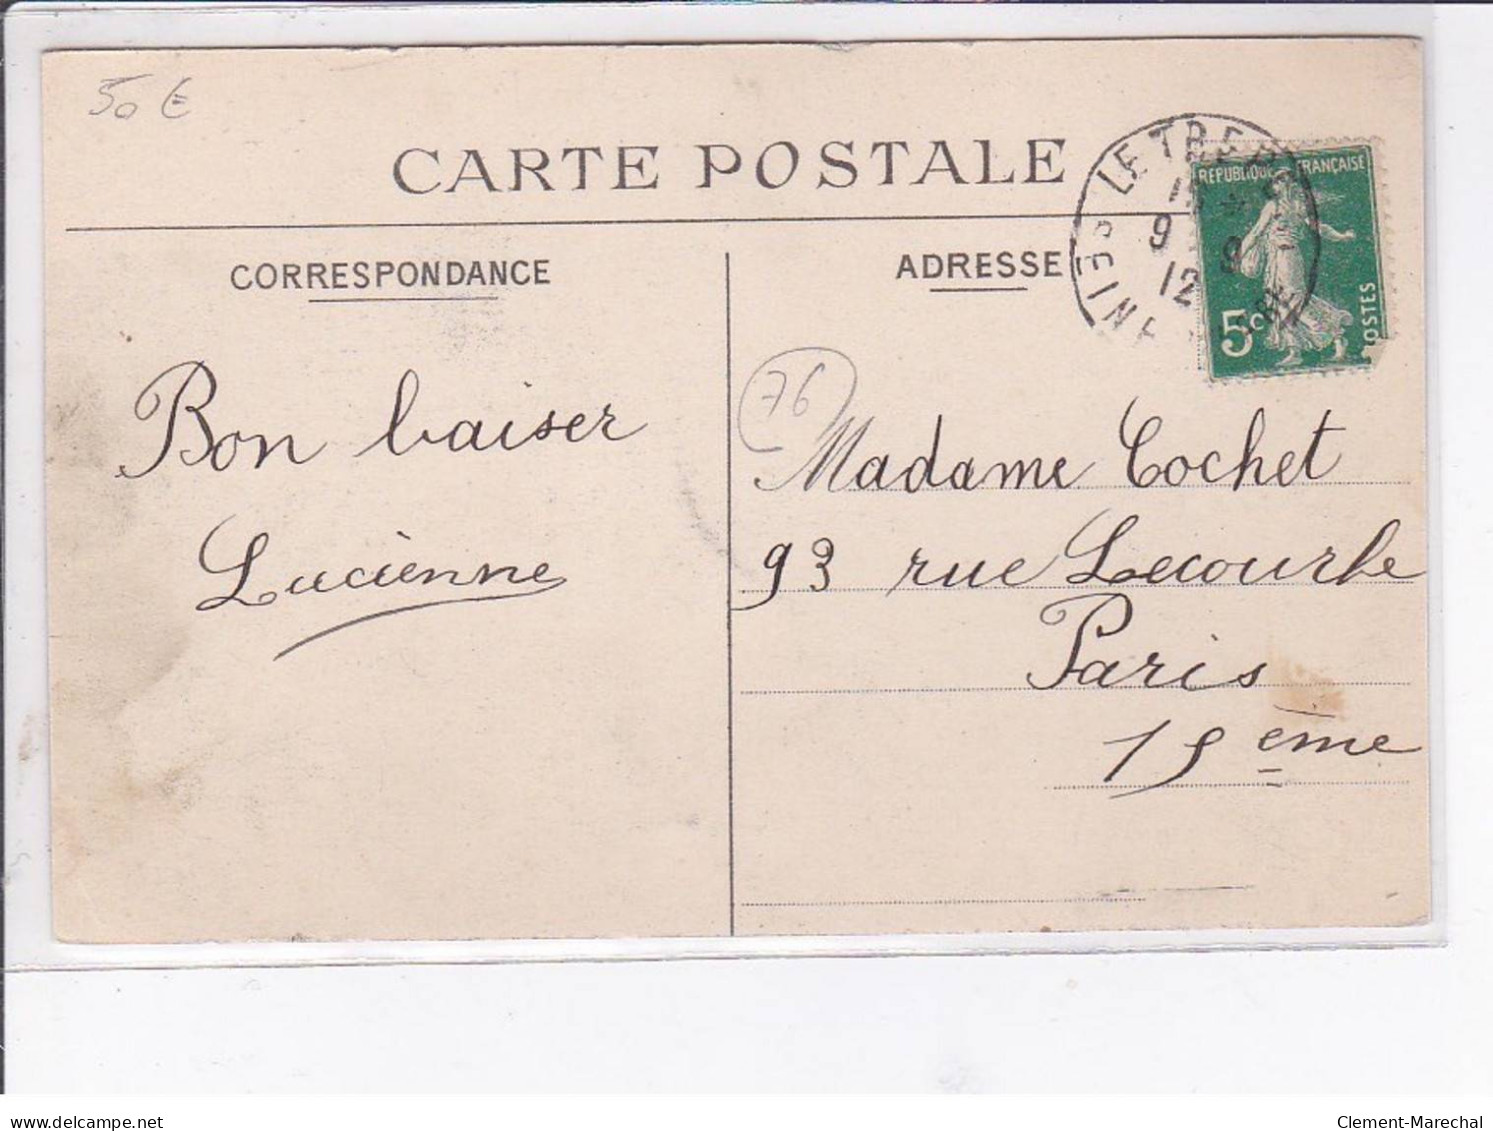 50 €
CARTE POSTALE
LE TREP
SEINE
9 9
12
REPUBLIQUE FRANÇAISE
5c
POSTES
CORRESPONDANCE
ADRESSE
76
Bon baiser
Lucienne
Madame Cochet
93 rue Lecourbe
Paris
15ème
delcampe.net
Clement-Marechal